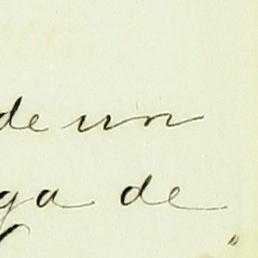 de un
ga de
"